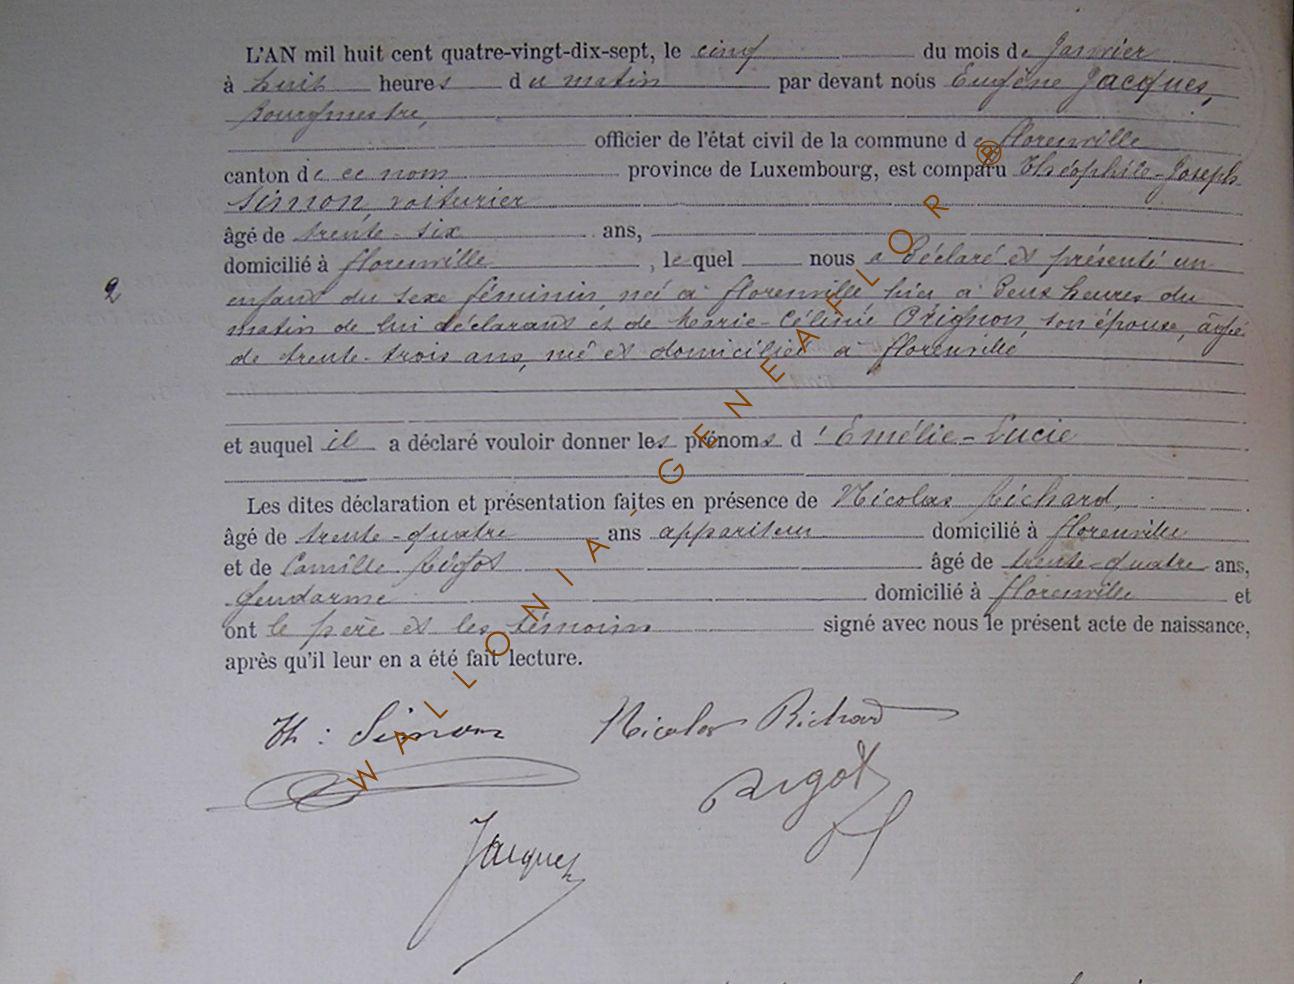 L'AN mil huit cent quatre-vingt-dix-sept, le cinq du mois de Janvier
à huit heures du matin par devant nous Eugène Jacques,
Bourgmestre,
officier de l'état civil de la commune de florenville
canton de ce nom province de Luxembourg, est comparu Théophile-Joseph
Simon, voiturier
âgé de trente-six ans,
domicilié à florenville, lequel nous a déclaré et présenté un
2
enfant du sexe féminin, né à florenville hier à deux heures du
matin de lui déclarant et de Marie-Célinie Orignon, son épouse, âgée
de trente-trois ans, née et domiciliée à florenville
et auquel il a déclaré vouloir donner les prénoms d'Emélie-Lucie
Les dites déclaration et présentation faites en présence de Nicolas Richard,
âgé de trente-quatre ans appariteur domicilié à florenville
et de Camille Rigot âgé de trente-quatre ans,
Gendarme domicilié à florenville et
ont le père et les témoins signé avec nous le présent acte de naissance,
après qu'il leur en a été fait lecture.
Th : Simon Nicolas Richard
Rigot
Jacques
WALLONIA-GENEAFLOR ®